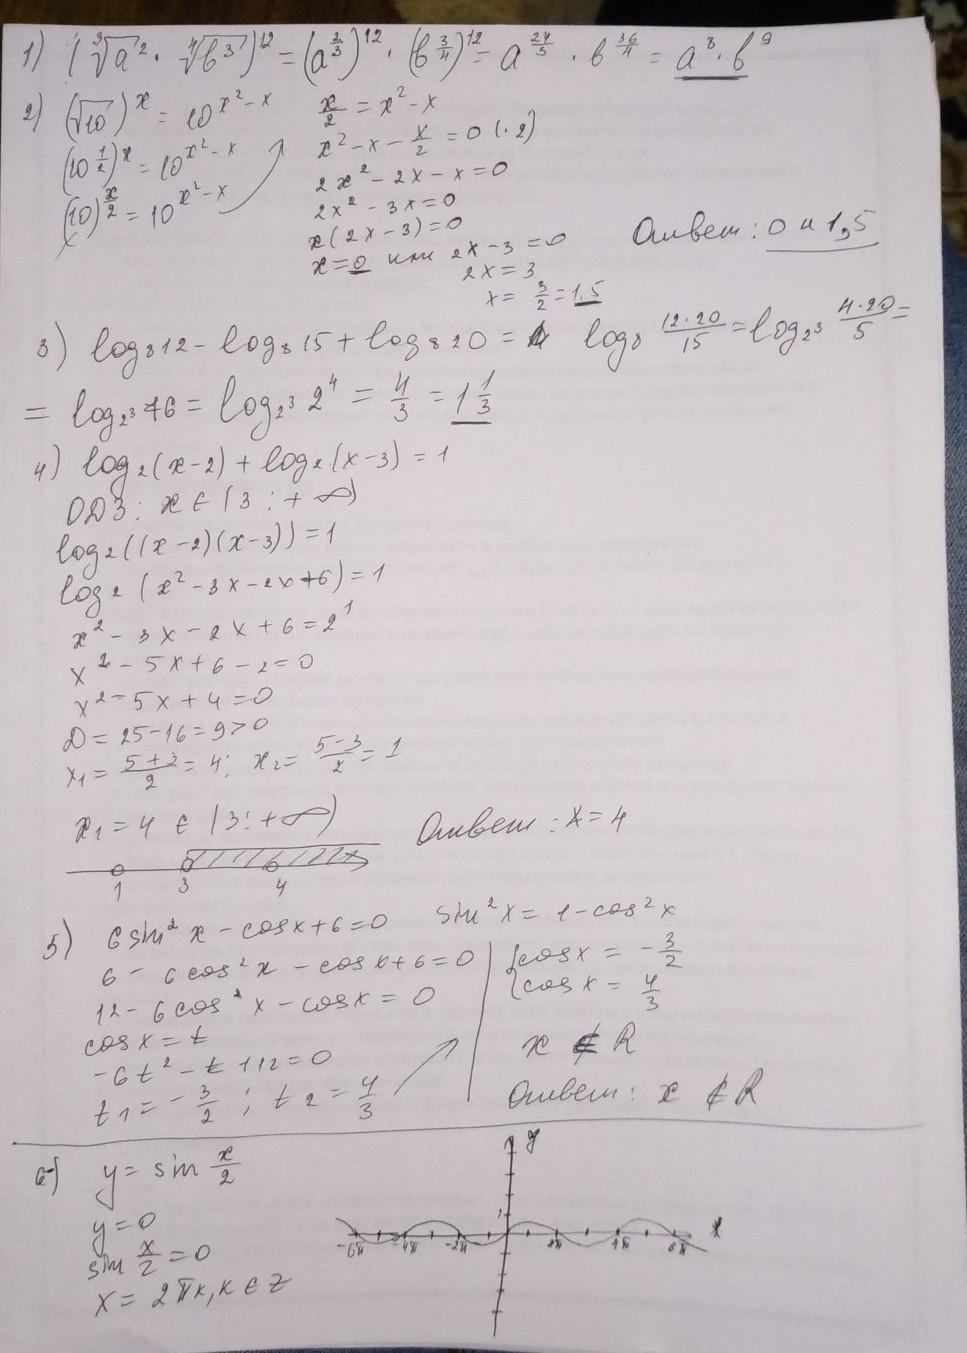 1) (∛a² · ∜b³)¹² = (a^(2/3))¹² · (b^(3/4))¹² = a^(24/3) · b^(36/4) = a⁸ · b⁹
2) (√10)^x = 10^(x²-x)
(10^(1/2))^x = 10^(x²-x)
(10)^(x/2) = 10^(x²-x)
x/2 = x² - x
x² - x - x/2 = 0 (·2)
2x² - 2x - x = 0
2x² - 3x = 0
x(2x - 3) = 0
x = 0 или 2x - 3 = 0
2x = 3
x = 3/2 = 1,5
Ответ: 0 и 1,5
3) log₈12 - log₈15 + log₈20 = log₈ (12·20)/15 = log_(2³) (4·20)/5 =
= log_(2³) 16 = log_(2³) 2⁴ = 4/3 = 1 1/3
4) log₂(x-2) + log₂(x-3) = 1
ОДЗ: x ∈ (3; +∞)
log₂((x-2)(x-3)) = 1
log₂(x² - 3x - 2x + 6) = 1
x² - 3x - 2x + 6 = 2¹
x² - 5x + 6 - 2 = 0
x² - 5x + 4 = 0
D = 25 - 16 = 9 > 0
x₁ = (5+3)/2 = 4; x₂ = (5-3)/2 = 1
x₁ = 4 ∈ (3; +∞)
Ответ: x = 4
1 3 4
5) 6sin²x - cosx + 6 = 0 sin²x = 1 - cos²x
6 - 6cos²x - cosx + 6 = 0
12 - 6cos²x - cosx = 0
cosx = t
-6t² - t + 12 = 0
t₁ = -3/2; t₂ = 4/3
cosx = -3/2
cosx = 4/3
x ∉ R
Ответ: x ∉ R
6) y = sin x/2
y = 0
sin x/2 = 0
x = 2πk, k ∈ Z
y
1
x
-6π -4π -2π 2π 4π 6π